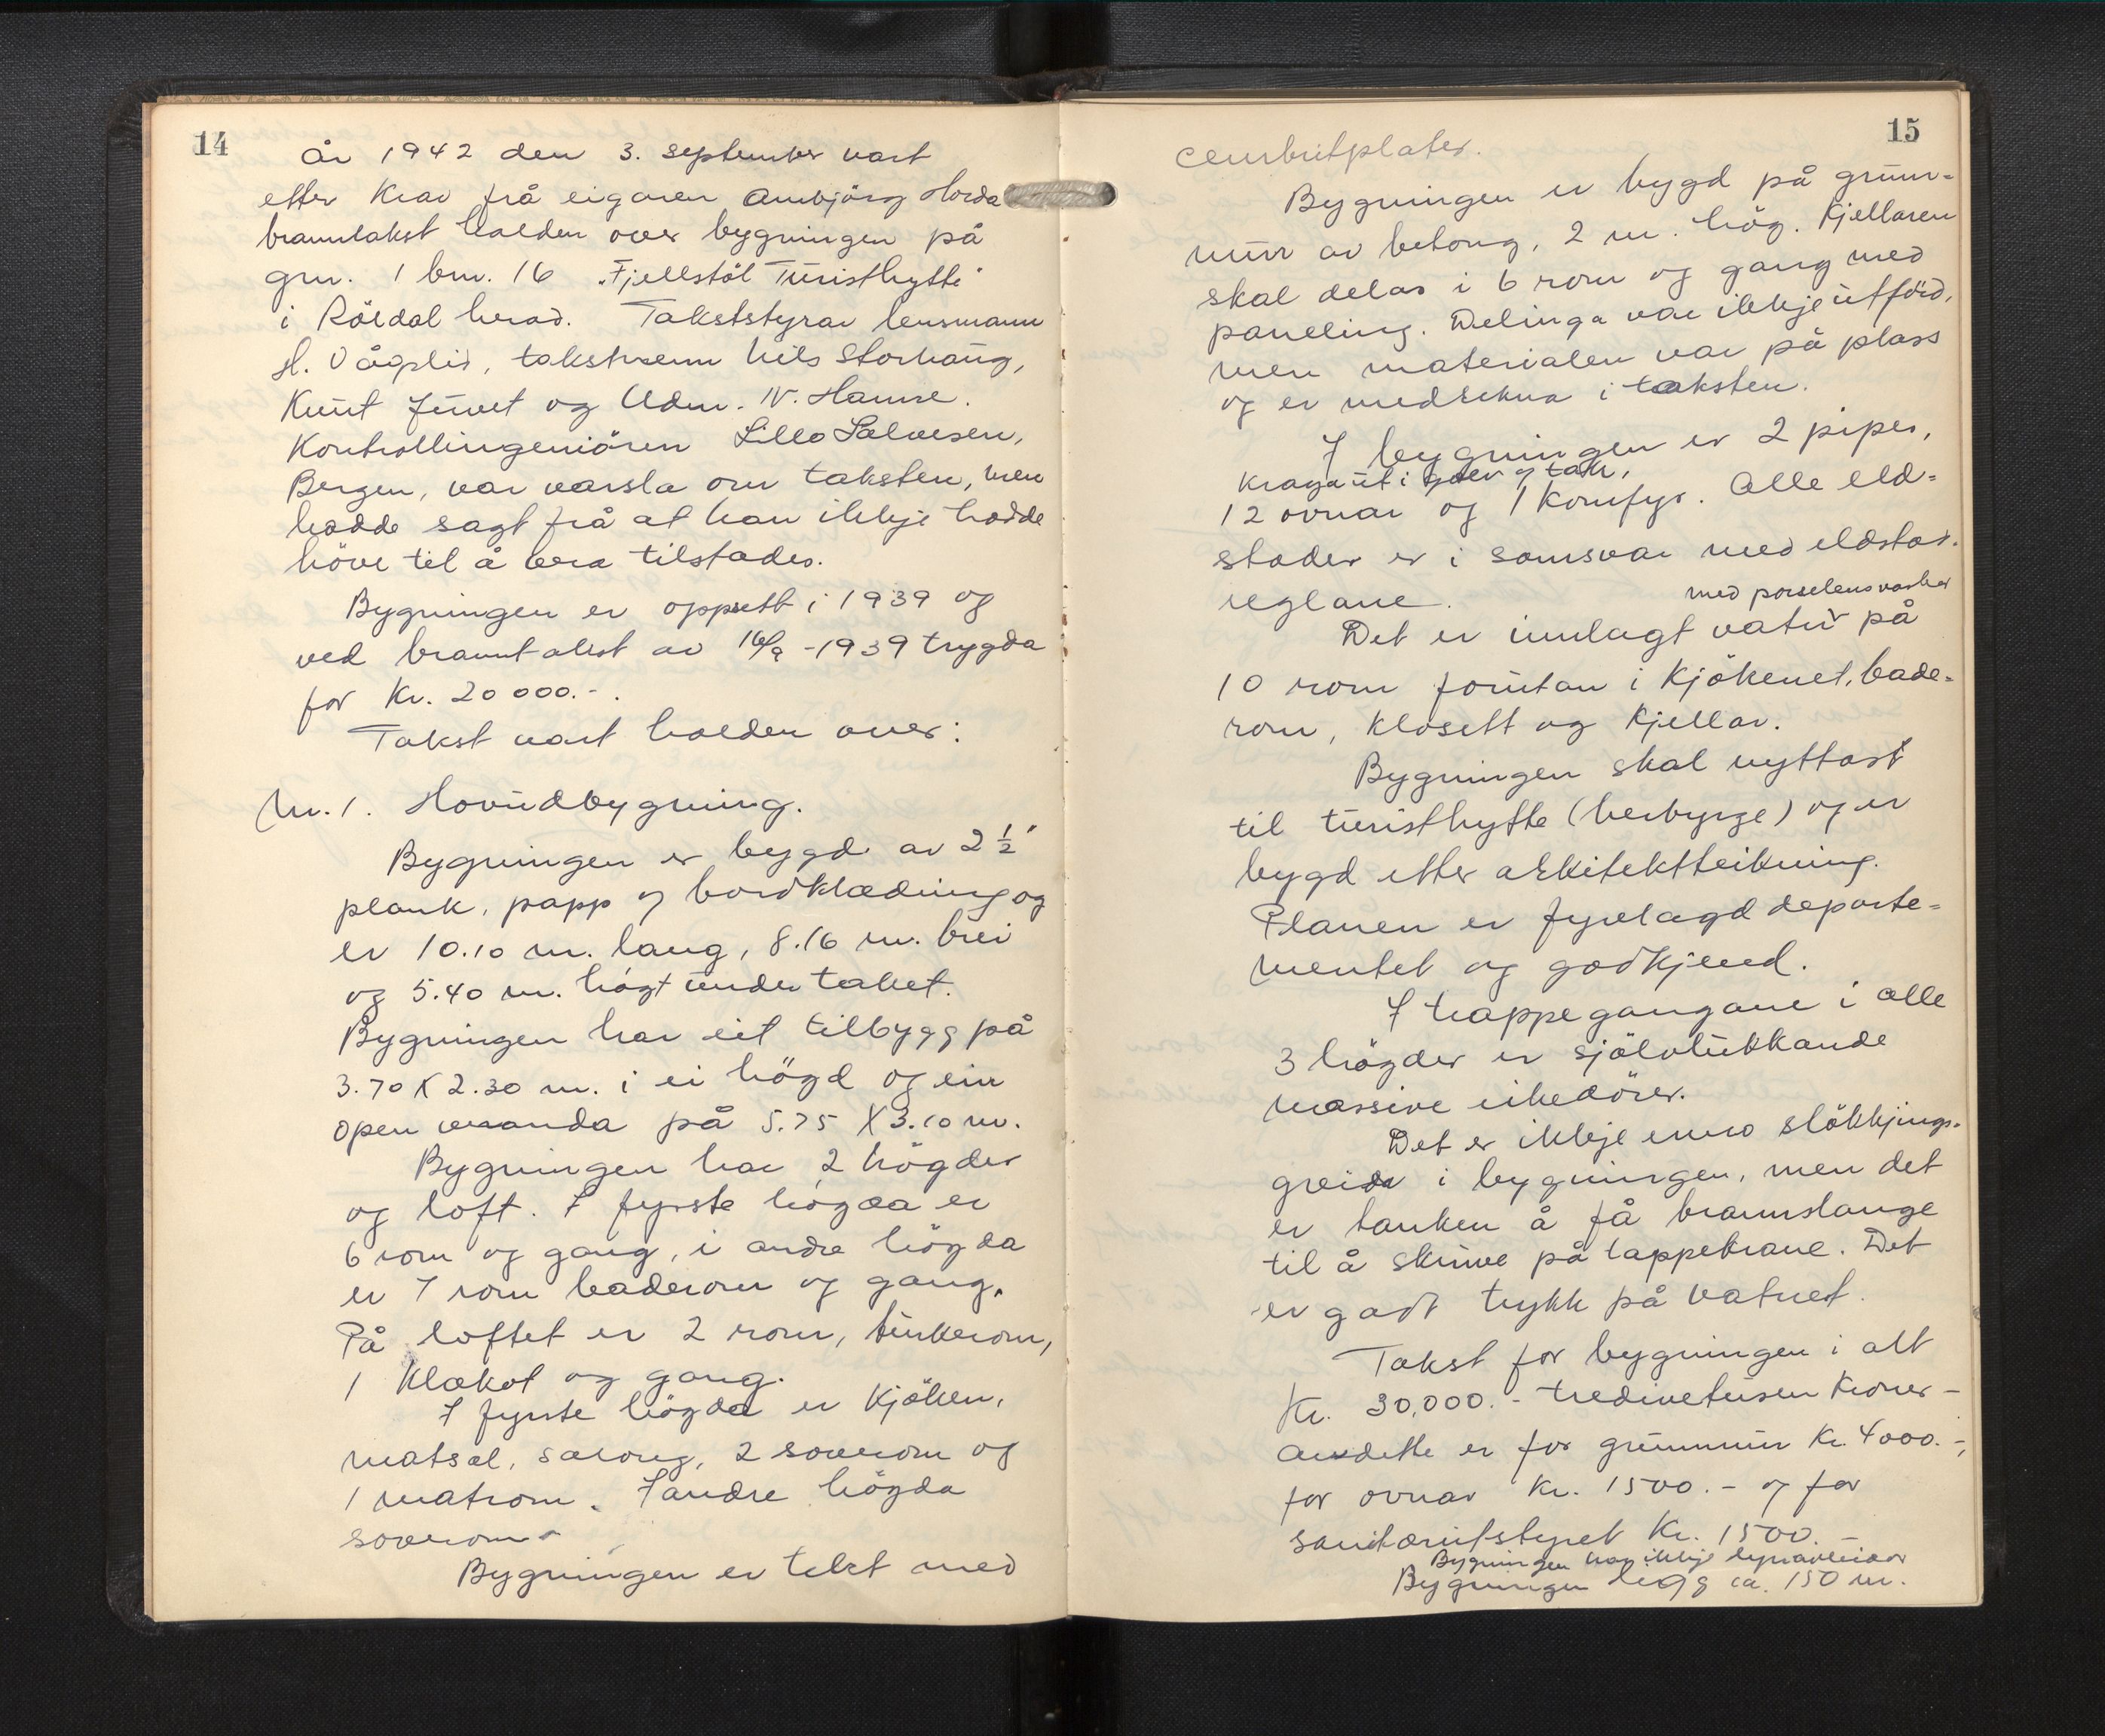 14
År 1942 den 3. september vart
etter krav frå eigaren Ambjörg Horda
branntakst halden over bygningen på
gnr. 1 bnr. 16 „Fjellstöl Turisthytte"
i Röldal herad. Takststyrar lensmann
H. Vågslid, takstmenn Nils Storhaug,
Knut Juvet og Udm. N. Hamre.
Kontrollingeniören Lillo Salvesen,
Bergen, var varsla om taksten, men
hadde sagt frå at han ikkje hadde
höve til å vera tilstades.
Bygningen er oppsett i 1939 og
ved branntakst av 16/9 -1939 trygda
for Kr. 20 000.-.
Takst vart halden over:
Nr. 1. Hovudbygning.
Bygningen er bygd av 2 1/2"
plank, papp og bordklædning og
er 10.10 m. lang, 8.16 m. brei
og 5.40 m. högt under taket.
Bygningen har eit tilbygg på
3.70 X 2.30 m. i ei högd og ein
open veranda på 5.75 X 3.10 m.
Bygningen har 2 högder
og loft. I fyrste högda er
6 rom og gang, i andre högda
er 7 rom baderom og gang.
På loftet er 2 rom, turkerom,
1 klækot og gang.
I fyrste högda er kjöken,
matsal, salong, 2 soverom og
1 matrom. I andre högda
soverom
Bygningen er tekt med
15
cembritplater.
Bygningen er bygd på grunn-
mur av betong, 2 m. hög. Kjellaren
skal delas i 6 rom og gang med
paneling. Delinga var ikkje utförd,
men materialen var på plass
og er medrekna i taksten.
I bygningen er 2 piper,
kraga ut i golv og tak,
12 ovnar og 1 komfyr. Alle eld-
stader er i samsvar med eldstad-
reglane.
med porselensvasker
Det er innlagt vatn på
10 rom foruten i kjökenet, bade-
rom, klosett og kjellar.
Bygningen skal nyttast
til turisthytte (herbyrge) og er
bygd etter arkitektteikning.
Planen er fyrelagd departe-
mentet og godkjend.
I trappegangane i alle
3 högder er sjölvlukkande
massive eikedörer.
Det er ikkje enno slökkjings-
greida i bygningen, men det
er tanken å få brannslange
til å skruve på tappekrane. Det
er godt trykk på vatnet.
Takst for bygningen i alt
Kr. 30,000.- tredivetusen kroner -
Av dette er for grunnmur Kr. 4000.-,
for ovnar Kr. 1500.- og for
sanitærutstyret Kr. 1500.-
Bygningen har ikkje lynavleidar
Bygningen ligg ca. 150 m.